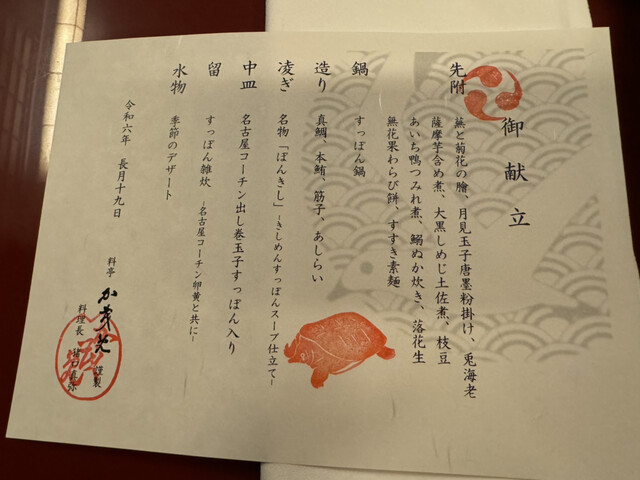 御献立
先附 蕪と菊花の膾、月見玉子唐墨粉掛け、兎海老
薩摩芋含め煮、大黒しめじ土佐煮、枝豆
あいち鴨つみれ煮、鰯ぬか炊き、落花生
無花果わらび餅、すすき素麺
鍋 すっぽん鍋
造り 真鯛、本鮪、筋子、あしらい
凌ぎ 名物「ぽんきし」~きしめんすっぽんスープ仕立て~
中皿 名古屋コーチン出し巻玉子すっぽん入り
留 すっぽん雑炊 ~名古屋コーチン卵黄と共に~
水物 季節のデザート
令和六年 長月十九日
料亭 加茂免 謹製
料理長